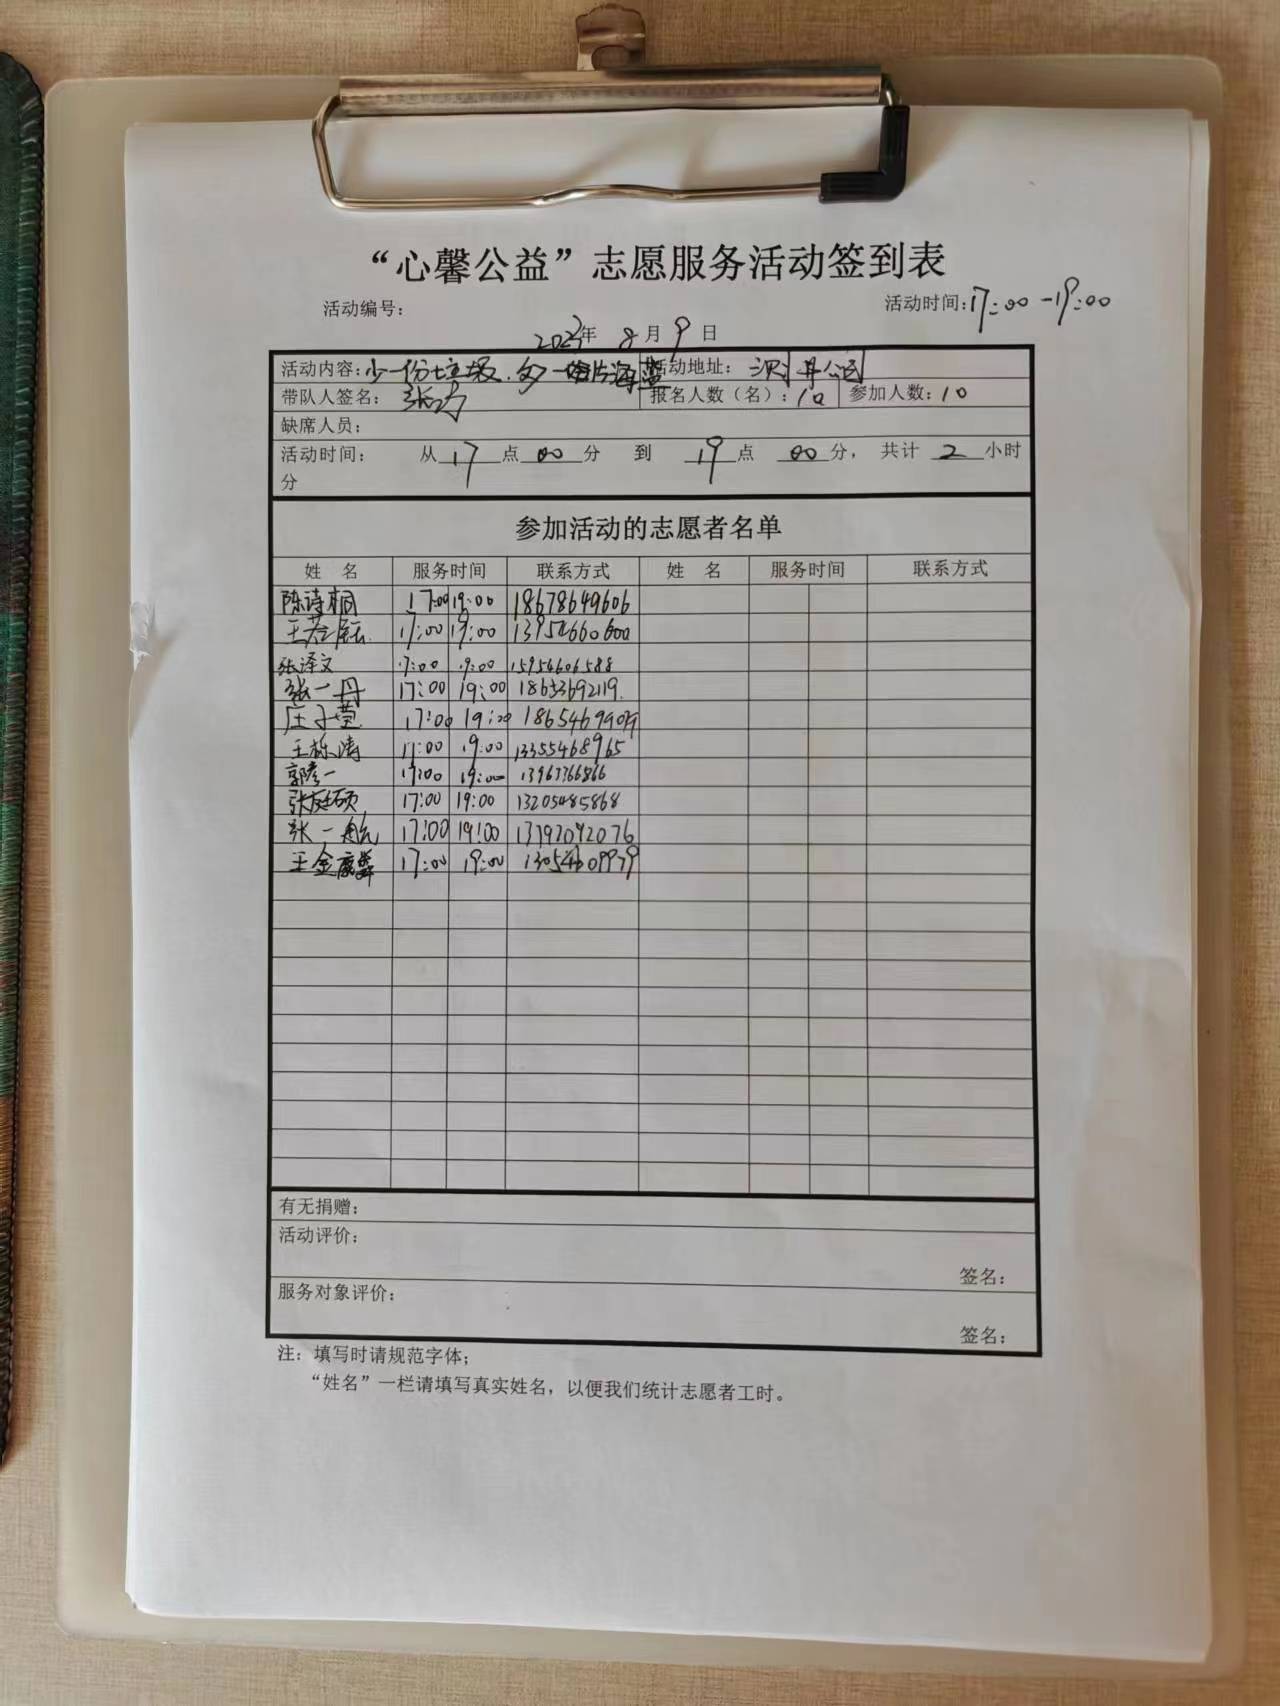 “心馨公益”志愿服务活动签到表
活动编号： 活动时间：17:00-19:00
2023年 8月 9日
活动内容：少一份垃圾.多一片海蓝 活动地址： 公园
带队人签名： 报名人数（名）：10 参加人数：10
缺席人员：
活动时间： 从 17 点 00 分 到 19 点 00 分，共计 2 小时
分
参加活动的志愿者名单
姓 名 服务时间 联系方式 姓 名 服务时间 联系方式
陈诗桐 17:00 19:00 18678649606
17:00 19:00 13954660600
张泽文 17:00 19:00 15954606588
张一丹 17:00 19:00 18653692119.
庄子萱 17:00 19:00
王栋涛 17:00 19:00 13355468965
郭彦一 17:00 19:00 13967366866
张庭硕 17:00 19:00 13205485868
张一航 17:00 19:00 13792092076
王金 17:00 19:00
有无捐赠：
活动评价：
签名：
服务对象评价：
签名：
注：填写时请规范字体；
“姓名”一栏请填写真实姓名，以便我们统计志愿者工时。